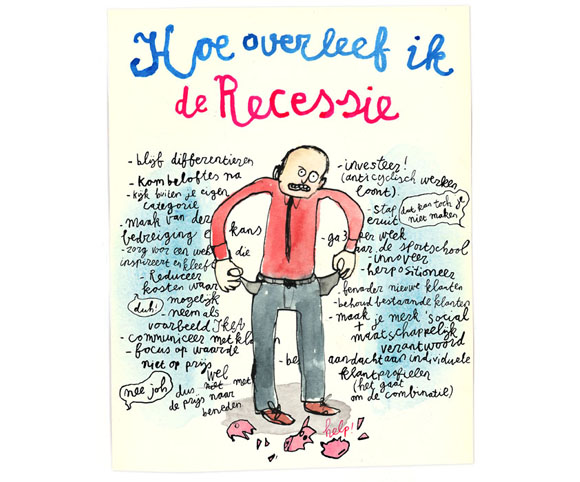 Hoe overleef ik
de Recessie
- blijf differentieren
- Kom beloftes na
- kijk buiten je eigen
categorie
- Maak van deze
bedreiging een kans
- zorg voor een web die
inspireert en kleeft
- Reduceer
kosten waar
mogelijk
duh!
- neem als
voorbeeld IKEA
- communiceer met
- focus op waarde
niet op prijs
nee joh
dus wel niet met
de prijs naar
beneden
- investeer!
(anticyclisch werken
loont)
- stap
eruit
dat kan toch
niet maken
- ga 3 per week
naar de sportschool
- innoveer
- herpositioneer
- benader nieuwe klanten
- behoud bestaande klanten
- maak je merk 'social'
+
maatschappelijk
verantwoord
- be aandacht aan individuele
klantprofielen
(het gaat
om de combinatie)
help!